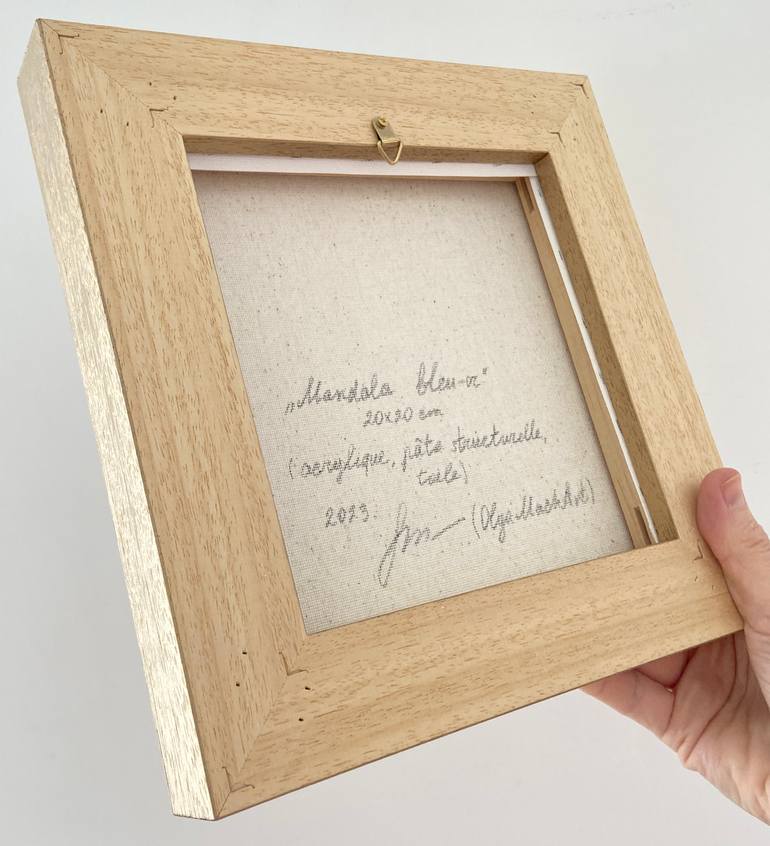 „Mandala bleu-or“
20x20 cm
(acrylique, pâte structurelle,
toile)
2023.
(OlgaMachArt)